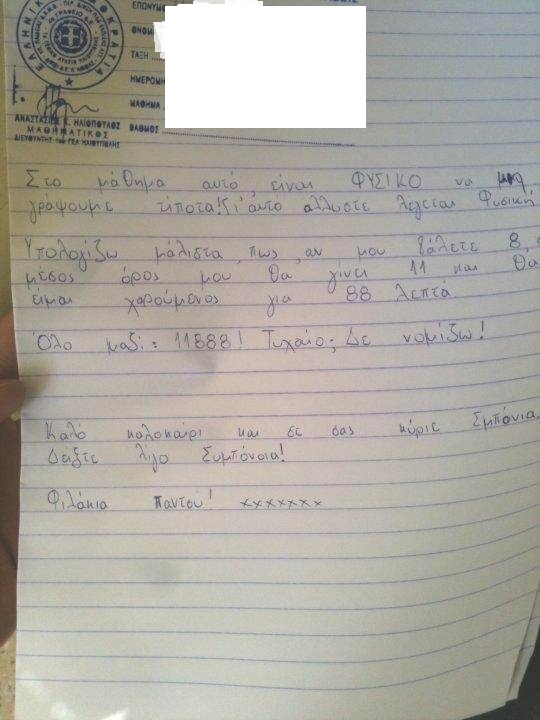 ΕΛΛΗΝΙΚΗ ΔΗΜΟΚΡΑΤΙΑ
ΕΠΩΝΥΜΟ
ΟΝΟΜΑ
ΤΑΞΗ
ΗΜΕΡΟΜΗΝ
ΜΑΘΗΜΑ
ΒΑΘΜΟΣ
ΑΝΑΣΤΑΣΙΟΣ Χ. ΗΛΙΟΠΟΥΛΟΣ
ΜΑΘΗΜΑΤΙΚΟΣ
ΔΙΕΥΘΥΝΤΗΣ 1ου ΓΕΛ ΗΛΙΟΥΠΟΛΗΣ
Στο μάθημα αυτό, είναι ΦΥΣΙΚΟ να μην
γράψουμε τίποτα! Γι'αυτό αλλωστε λέγεται Φυσική
Υπολογίζω μάλιστα, πως, αν μου βάλετε 8, ο
μέσος όρος μου θα γίνει 11 και θα
είμαι χαρούμενος για 88 λεπτά
Όλο μαζί: 11888! Τυχαίο; Δε νομίζω!
Καλό καλοκαίρι και σε σας κύριε Σμπόνια.
Δείξτε λίγο Συμπόνοια!
Φιλάκια παντού! xxxxxxx